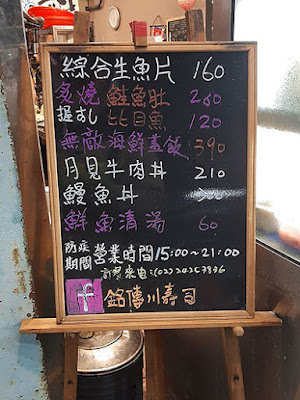 綜合生魚片 160
炙燒 鮭魚肚 260
握すし 比目魚 120
無敵海鮮蓋飯 390
月見牛肉丼 210
鰻魚丼
鮮魚清湯 60
防疫期間 營業時間15:00~21:00
來電:(02)24253336
f 銘傳川壽司